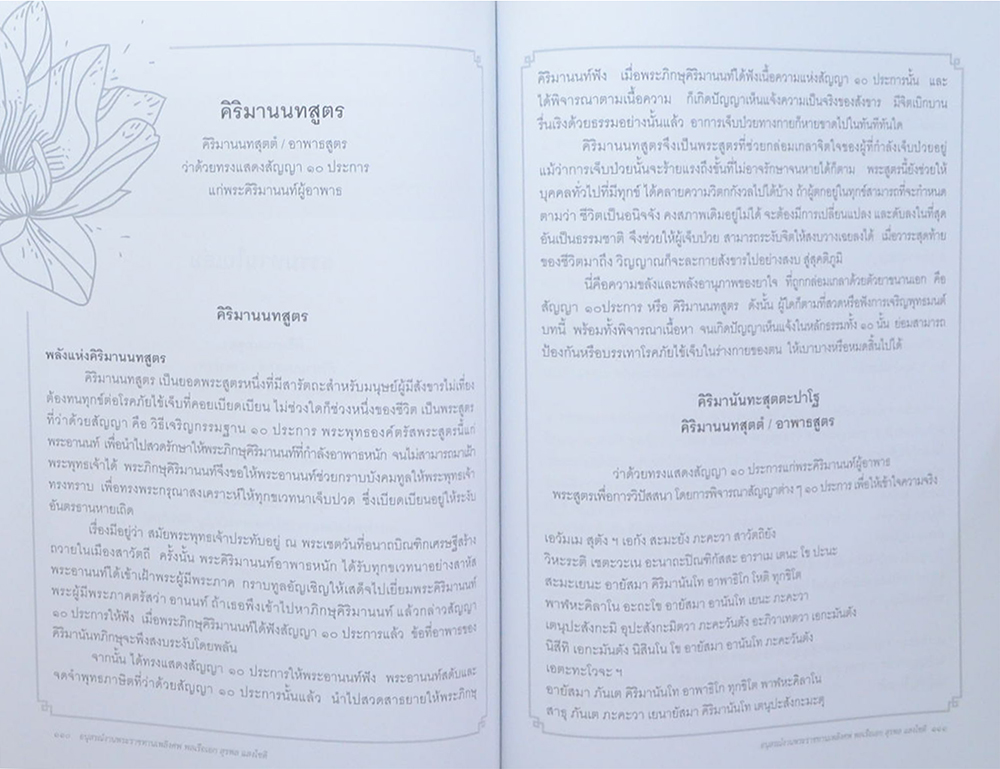 คิริมานนทสูตร
คิริมานนทสุตตํ / อาพาธสูตร
ว่าด้วยทรงแสดงสัญญา ๑๐ ประการ
แก่พระคิริมานนท์ผู้อาพาธ
คิริมานนทสูตร
พลังแห่งคิริมานนทสูตร
คิริมานนทสูตร เป็นยอดพระสูตรหนึ่งที่มีสารัตถะสำหรับมนุษย์ผู้มีสังขารไม่เที่ยง
ต้องทนทุกข์ต่อโรคภัยไข้เจ็บที่คอยเบียดเบียน ไม่ช่วงใดก็ช่วงหนึ่งของชีวิต เป็นพระสูตร
ที่ว่าด้วยสัญญา คือ วิธีเจริญกรรมฐาน ๑๐ ประการ พระพุทธองค์ตรัสพระสูตรนี้แก่
พระอานนท์ เพื่อนำไปสวดรักษาให้พระภิกษุคิริมานนท์ที่กำลังอาพาธหนัก จนไม่สามารถมาเฝ้า
พระพุทธเจ้าได้ พระภิกษุคิริมานนท์จึงขอให้พระอานนท์ช่วยกราบบังคมทูลให้พระพุทธเจ้า
ทรงทราบ เพื่อทรงพระกรุณาสงเคราะห์ให้ทุกขเวทนาเจ็บปวด ซึ่งเบียดเบียนอยู่ให้ระงับ
อันตรธานหายเถิด
เรื่องมีอยู่ว่า สมัยพระพุทธเจ้าประทับอยู่ ณ พระเชตวันที่อนาถบิณฑิกเศรษฐีสร้าง
ถวายในเมืองสาวัตถี ครั้งนั้น พระคิริมานนท์อาพาธหนัก ได้รับทุกขเวทนาอย่างสาหัส
พระอานนท์ได้เข้าเฝ้าพระผู้มีพระภาค กราบทูลอัญเชิญให้เสด็จไปเยี่ยมพระคิริมานนท์
พระผู้มีพระภาคตรัสว่า อานนท์ ถ้าเธอพึงเข้าไปหาภิกษุคิริมานนท์ แล้วกล่าวสัญญา
๑๐ ประการให้ฟัง เมื่อพระภิกษุคิริมานนท์ได้ฟังสัญญา ๑๐ ประการแล้ว ข้อที่อาพาธของ
คิริมานันทภิกษุจะพึงสงบระงับโดยพลัน
จากนั้น ได้ทรงแสดงสัญญา ๑๐ ประการให้พระอานนท์ฟัง พระอานนท์สดับและ
จดจำพุทธภาษิตที่ว่าด้วยสัญญา ๑๐ ประการนั้นแล้ว นำไปสวดสาธยายให้พระภิกษุ
๑๑๐ อนุสรณ์งานพระราชทานเพลิงศพ พลเรือเอก สุรพล แสงโชติ
คิริมานนท์ฟัง เมื่อพระภิกษุคิริมานนท์ได้ฟังเนื้อความแห่งสัญญา ๑๐ ประการนั้น และ
ได้พิจารณาตามเนื้อความ ก็เกิดปัญญาเห็นแจ้งความเป็นจริงของสังขาร มีจิตเบิกบาน
รื่นเริงด้วยธรรมอย่างนั้นแล้ว อาการเจ็บป่วยทางกายก็หายขาดไปในทันทีทันใด
คิริมานนทสูตรจึงเป็นพระสูตรที่ช่วยกล่อมเกลาจิตใจของผู้ที่กำลังเจ็บป่วยอยู่
แม้ว่าการเจ็บป่วยนั้นจะร้ายแรงถึงขั้นที่ไม่อาจรักษาจนหายได้ก็ตาม พระสูตรนี้ยังช่วยให้
บุคคลทั่วไปที่มีทุกข์ ได้คลายความวิตกกังวลไปได้บ้าง ถ้าผู้ตกอยู่ในทุกข์สามารถที่จะกำหนด
ตามว่า ชีวิตเป็นอนิจจัง คงสภาพเดิมอยู่ไม่ได้ จะต้องมีการเปลี่ยนแปลง และดับลงในที่สุด
อันเป็นธรรมชาติ จึงช่วยให้ผู้เจ็บป่วย สามารถระงับจิตให้สงบวางเฉยลงได้ เมื่อวาระสุดท้าย
ของชีวิตมาถึง วิญญาณก็จะละกายสังขารไปอย่างสงบ สู่สุคติภูมิ
นี่คือความขลังและพลังอานุภาพของยาใจ ที่ถูกกล่อมเกลาด้วยตัวยาขนานเอก คือ
สัญญา ๑๐ประการ หรือ คิริมานนทสูตร ดังนั้น ผู้ใดก็ตามที่สวดหรือฟังการเจริญพุทธมนต์
บทนี้ พร้อมทั้งพิจารณาเนื้อหา จนเกิดปัญญาเห็นแจ้งในหลักธรรมทั้ง ๑๐ นั้น ย่อมสามารถ
ป้องกันหรือบรรเทาโรคภัยไข้เจ็บในร่างกายของตน ให้เบาบางหรือหมดสิ้นไปได้
คิริมานันทะสุตตะปาโฐ
คิริมานนทสุตตํ / อาพาธสูตร
ว่าด้วยทรงแสดงสัญญา ๑๐ ประการแก่พระคิริมานนท์ผู้อาพาธ
พระสูตรเพื่อการวิปัสสนา โดยการพิจารณาสัญญาต่าง ๆ ๑๐ ประการ เพื่อให้เข้าใจความจริง
เอวัมเม สุตัง ฯ เอกัง สะมะยัง ภะคะวา สาวัตถิยัง
วิหะระติ เชตะวะเน อะนาถะปิณฑิกัสสะ อาราเม เตนะ โข ปะนะ
สะมะเยนะ อายัสมา คิริมานันโท อาพาธิโก โหติ ทุกขิโต
พาฬหะคิลาโน อะถะโข อายัสมา อานันโท เยนะ ภะคะวา
เตนุปะสังกะมิ อุปะสังกะมิตวา ภะคะวันตัง อะภิวาเทตวา เอกะมันตัง
นิสีทิ เอกะมันตัง นิสินโน โข อายัสมา อานันโท ภะคะวันตัง
เอตะทะโวจะ ฯ
อายัสมา ภันเต คิริมานันโท อาพาธิโก ทุกขิโต พาฬหะคิลาโน
สาธุ ภันเต ภะคะวา เยนายัสมา คิริมานันโท เตนุปะสังกะมะตุ
อนุสรณ์งานพระราชทานเพลิงศพ พลเรือเอก สุรพล แสงโชติ ๑๑๑